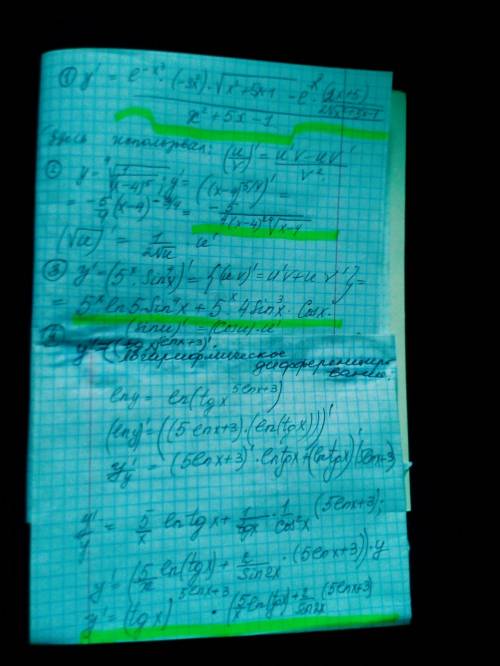 ① y' = (e^{-x³}·(-3x²)·√(x²+5x-1) - e^{-x³}·(2x+5)/(2√(x²+5x-1))) / (x²+5x-1)
использовал: (u/v)' = (u'v - uv')/v²
② y = ⁴√(1/(x-4)⁵); y' = ((x-4)^{-5/4})' =
= -5/4 (x-4)^{-9/4} = -5/(4(x-4)²⁴√(x-4))
(√u)' = 1/(2√u) · u'
③ y' = (5ˣ · sin⁴x)' = {(uv)' = u'v + uv'} =
= 5ˣ ln5·sin⁴x + 5ˣ·4sin³x · cosx.
(sinu)' = (cosu)·u'
y = (tgx)^{5lnx+3}.
логарифмическое
дифференциро
вание:
lny = ln(tgx^{5lnx+3})
(lny)' = ((5lnx+3)·(ln(tgx)))'
y'/y = (5lnx+3)'·lntgx + (lntgx)'(5lnx+3)
y'/y = 5/x lntgx + 1/tgx · 1/cos²x (5lnx+3);
y' = (5/x ln(tgx) + 2/sin2x · (5lnx+3))·y
y' = (tgx)^{5lnx+3} · (5/x ln(tgx) + 2/sin2x (5lnx+3)